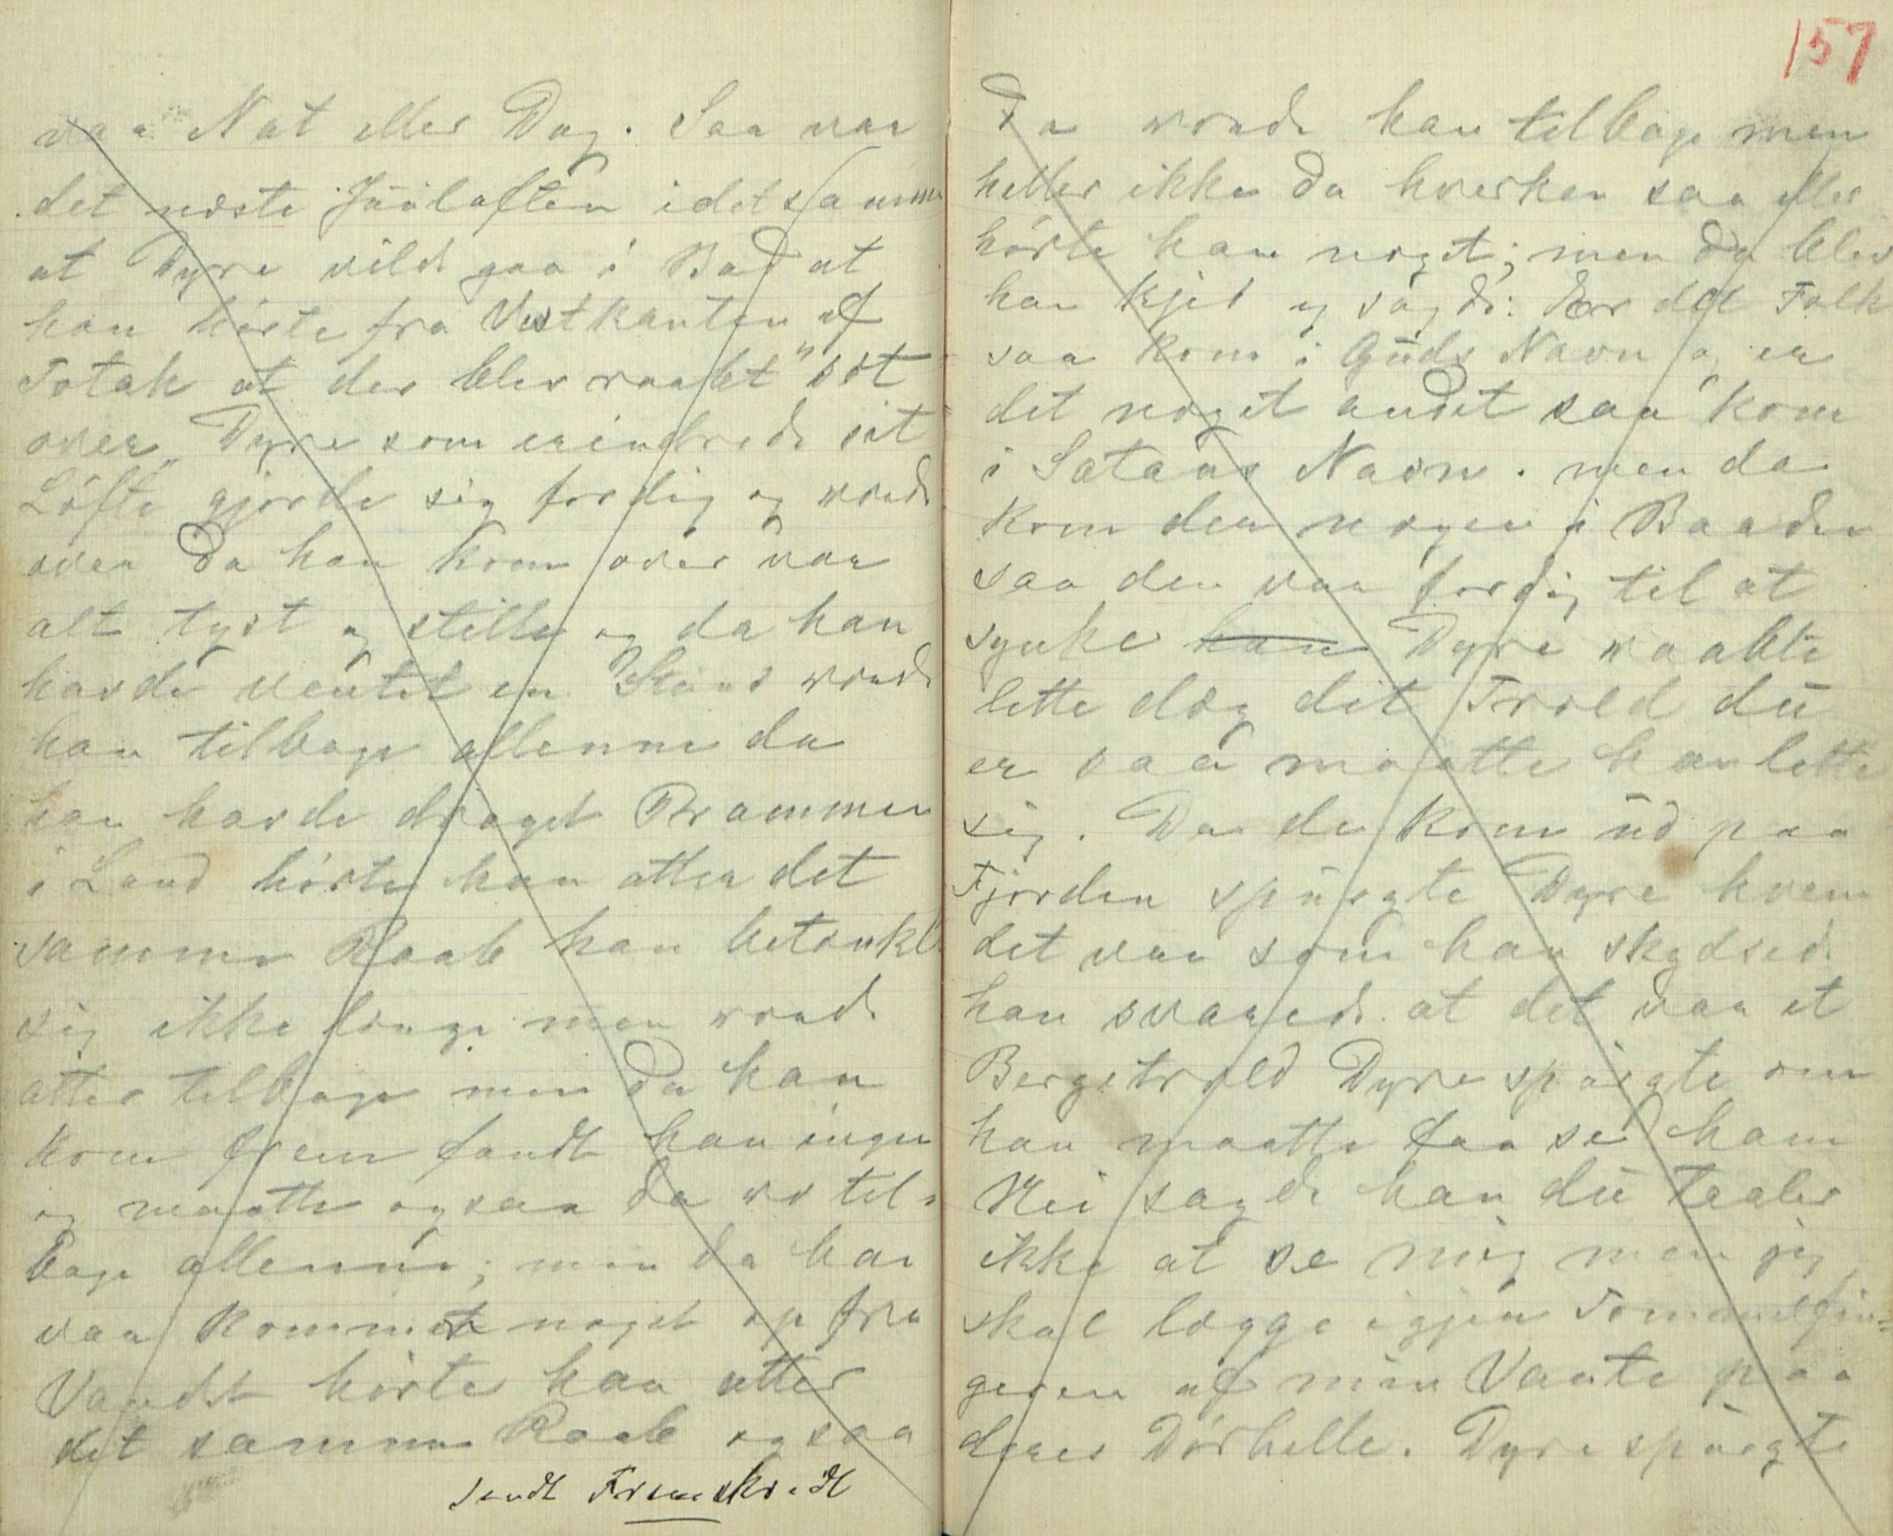 var Nat eller Dag. Saa var
det neste Jüülaften i det samme
at Dyre vilde gaa i Bad at
han hörte fra Vestkanten af
Totak at der blev raabt "sæt
over" Dyre som erindrede sit
Löfte gjorde sig færdig og roede
over Da han kom over var
alt tyst og stille og da han
havde ventet en Stünd roede
han tilbage allenne da
han havde draget Prammen
i Land hörte han atter det
samme Raab han betænkte
sig ikke længe men roede
atter tilbage men da han
kom frem fandt han ingen
og maatte ogsaa da ro til-
bage allenne; men da han
var kommet noget op fra
Vandet hörte han atter
det samme Raab ogsaa
sendt Fremskridt
157
Da roede han tilbage men
heller ikke da hverken saa eller
hörte han noget; men da blev
han kjed og sagde: Er det Folk
saa kom i Güds Navn og er
det noget andet saa kom
i Satans Navn. men da
kom der nogen i Baaden
saa den var færdig til at
synke han Dyre raabte
lette dog dit Trold dü
er saa maatte han lette
sig. Da de kom üd paa
Fjorden spürgte Dyre hvem
det var som han skydsede
han svarede at det var et
Bergetrold Dyre spürgte om
han maatte faa se ham
Nei sagde han dü taaler
ikke at se mig men jeg
skal lægge igjen Tommelfin-
geren af min Vante paa
deres Dörhelle. Dyre spürgte